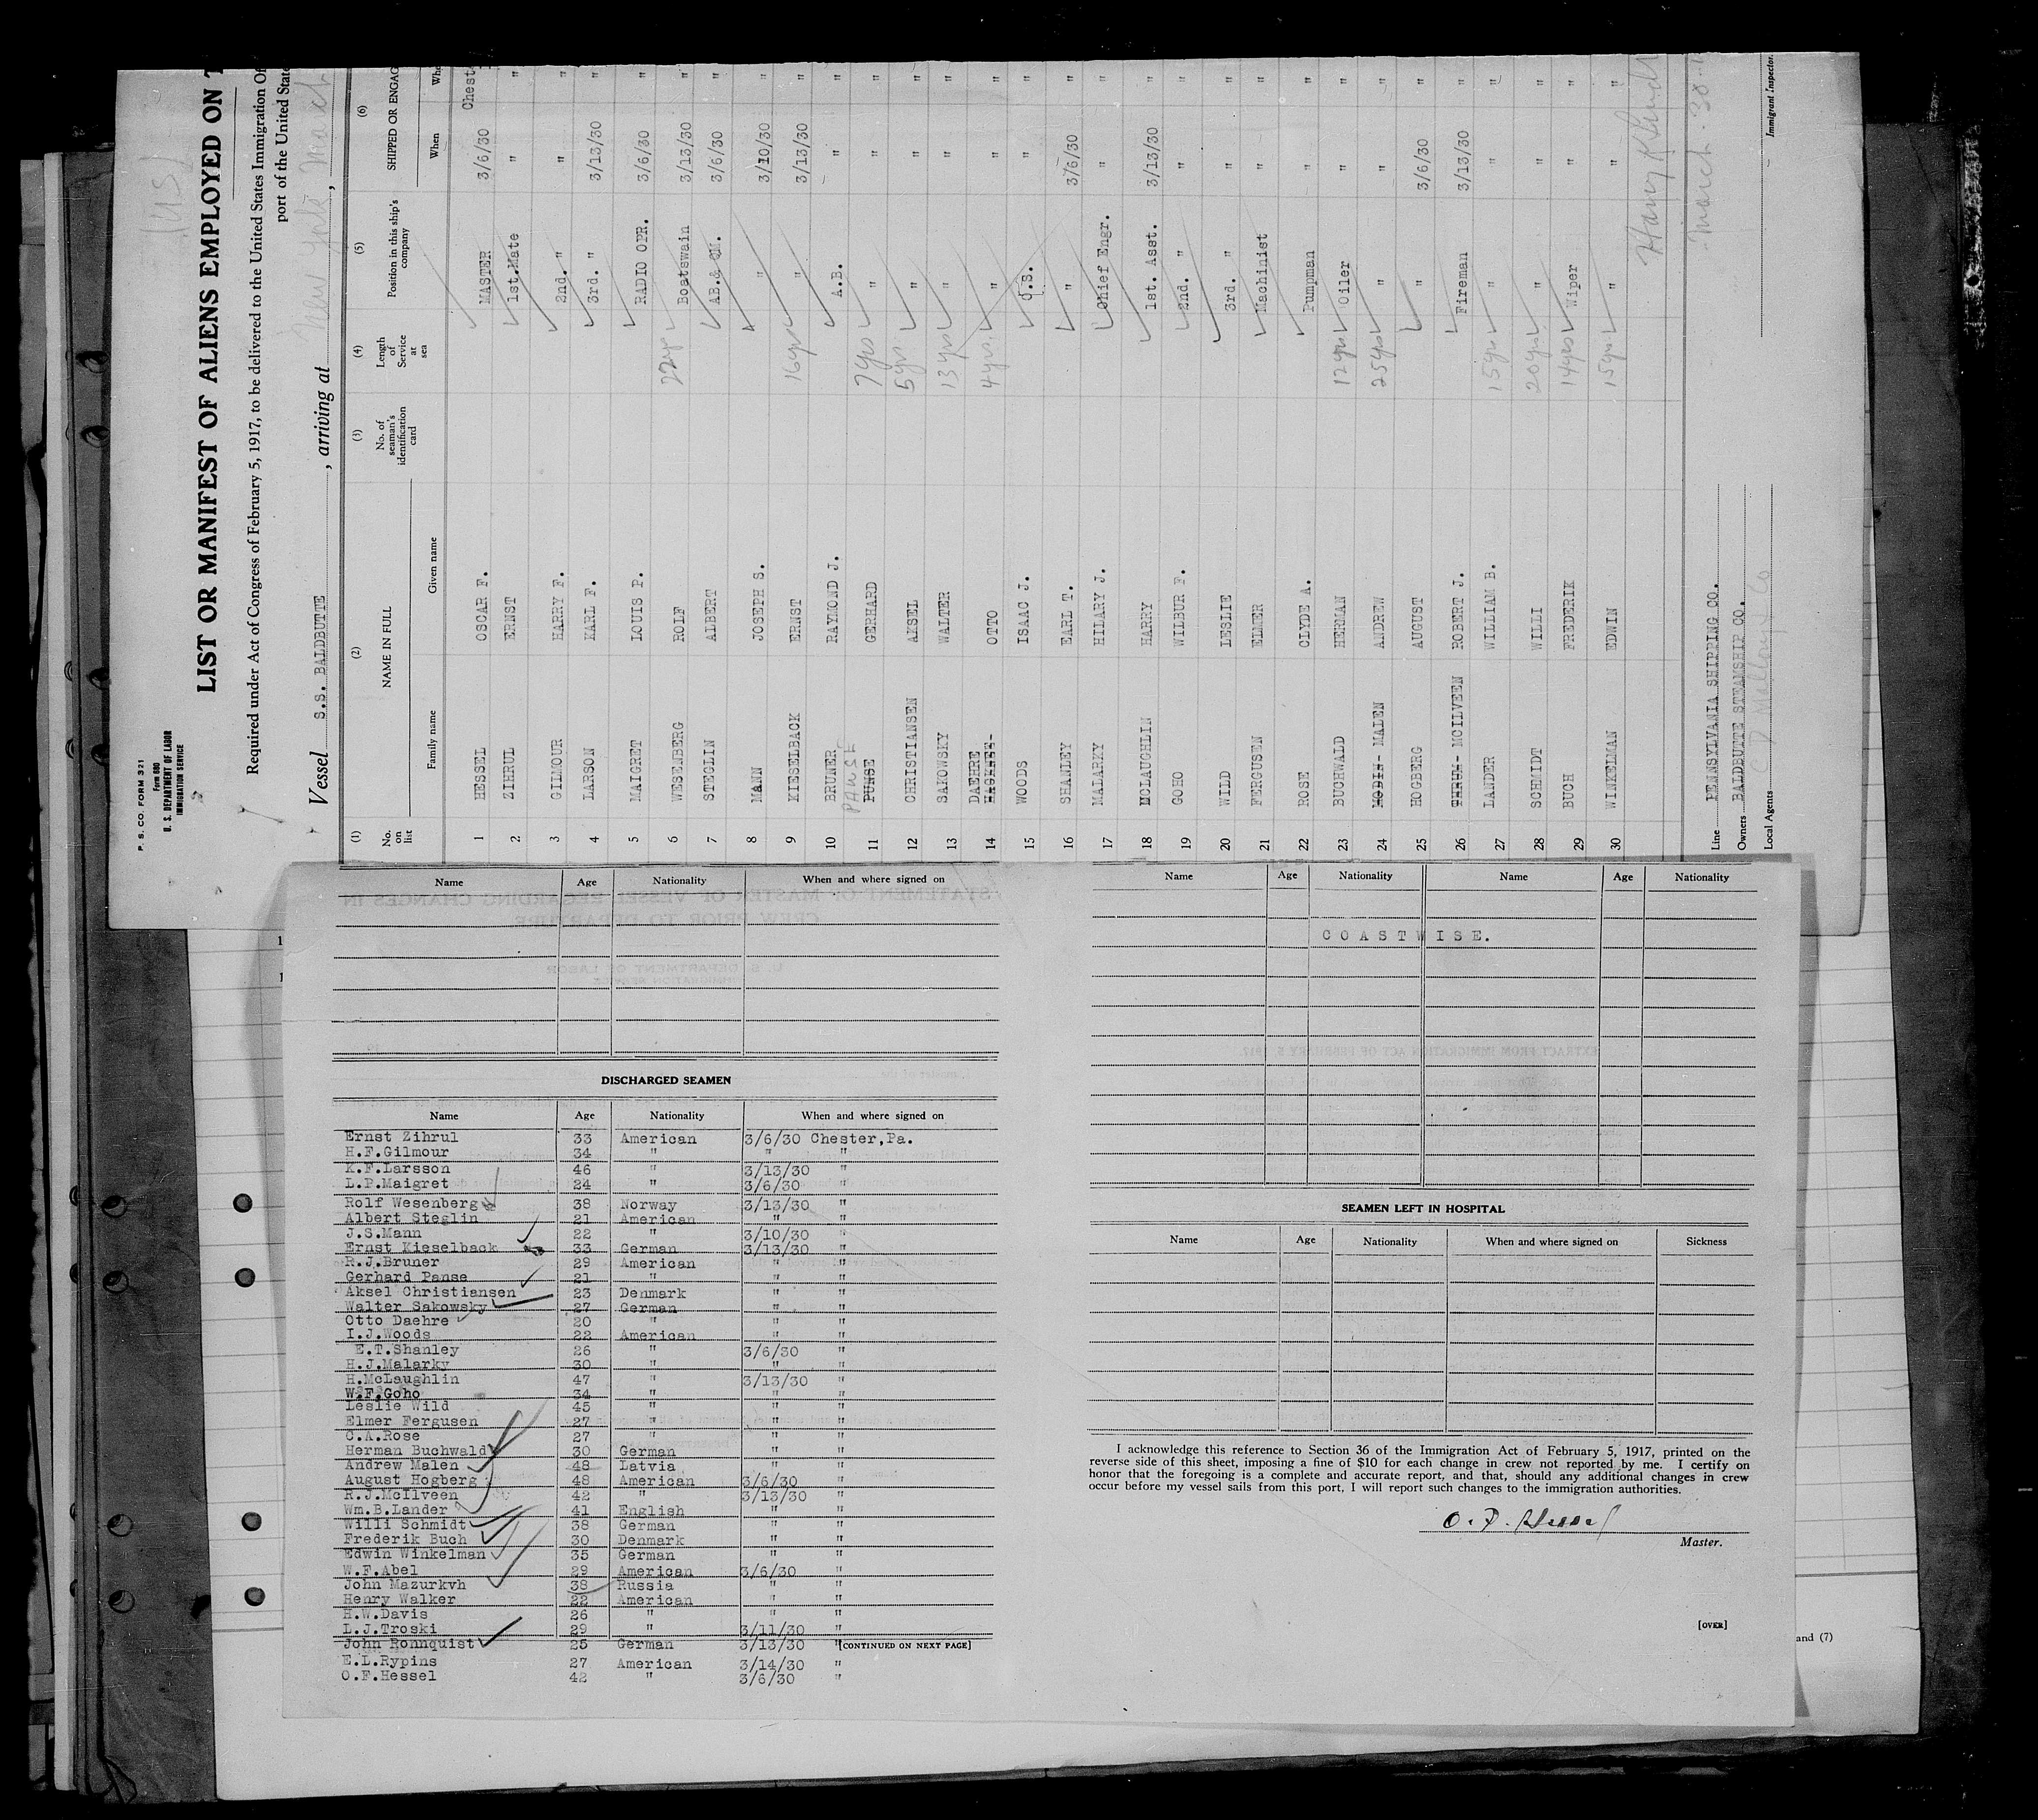 P. S. CO. FORM 321
Form 680
U. S. DEPARTMENT OF LABOR
IMMIGRATION SERVICE
LIST OR MANIFEST OF ALIENS EMPLOYED ON
Required under Act of Congress of February 5, 1917, to be delivered to the United States Immigration
port of the United
Vessel S.S. BALDBUTTE, arriving at New York, March
(1) (2) (3) (4) (5) (6)
No. on list NAME IN FULL No. of seaman's identification card Length of Service at sea Position in this ship's company SHIPPED OR
Family name Given name When
1 HESSEL OSCAR F. MASTER 3/6/30
2 ZIHRUL ERNST 1st.Mate " "
3 GILMOUR HARRY F. 2nd. " " "
4 LARSON KARL F. 3rd. " 3/13/30 "
5 MAIGRET LOUIS P. RADIO OPR. 3/6/30 "
6 WESENBERG ROLF 22yrs Boatswain 3/13/30 "
7 STEGLIN ALBERT AB.& CM. 3/6/30 "
8 MANN JOSEPH S. " 3/10/30 "
9 KIESELBACK ERNST 16yrs " 3/13/30 "
10 BRUNER RAYMOND J. A.B. " "
PANSE
11 PUNSE GERHARD 7yrs " " "
12 CHRISTIANSEN AKSEL 5yrs " " "
13 SAKOWSKY WALTER 13yrs " " "
DAEHRE
14 OTTO 4yrs. " " "
15 WOODS ISAAC J. O.S. " "
16 SHANLEY EARL T. " 3/6/30 "
17 MALARKY HILARY J. Chief Engr. " "
18 MCLAUGHLIN HARRY 1st. Asst. 3/13/30 "
19 GOHO WILBUR F. 2nd. " " "
20 WILD LESLIE 3rd. " " "
21 FERGUSEN ELMER Machinist " "
22 ROSE CLYDE A. Pumpman " "
23 BUCHWALD HERMAN 12yrs Oiler " "
24 MODIN- MALEN ANDREW 25yrs " " "
25 HOGBERG AUGUST " 3/6/30 "
26 THRUM- MCILVEEN ROBERT J. Fireman 3/13/30 "
27 LANDER WILLIAM B. 15yrs " " "
28 SCHMIDT WILLI 20yrs " " "
29 BUCH FREDERIK 14yrs Wiper " "
30 WINKELMAN EDWIN 15yrs " " "
Line PENNSYLVANIA SHIPPING CO.
Owners BALDBUTTE STEAMSHIP CO.
Local Agents
Immigrant Inspector.
Name Age Nationality When and where signed on
DISCHARGED SEAMEN
Name Age Nationality When and where signed on
Ernst Zihrul 33 American 3/6/30 Chester,Pa.
H.F.Gilmour 34 " " "
K.F.Larsson 46 " 3/13/30 "
L.P.Maigret 24 " 3/6/30 "
Rolf Wesenberg 38 Norway 3/13/30 "
Albert Steglin 21 American " "
J.S.Mann 22 " 3/10/30 "
Ernst Kieselback 33 German 3/13/30 "
R.J.Bruner 29 American " "
Gerhard Panse 21 " " "
Aksel Christiansen 23 Denmark " "
Walter Sakowsky 27 German " "
Otto Daehre 20 " " "
I.J.Woods 22 American " "
E.T.Shanley 26 " 3/6/30 "
H.J.Malarky 30 " " "
H.McLaughlin 47 " 3/13/30 "
W.F.Goho 34 " " "
Leslie Wild 45 " " "
Elmer Fergusen 27 " " "
C.A.Rose 27 " " "
Herman Buchwald 30 German " "
Andrew Malen 48 Latvia " "
August Hogberg 48 American 3/6/30 "
R.J.McIlveen 42 " 3/13/30 "
Wm.B.Lander 41 English " "
Willi Schmidt 38 German " "
Frederik Buch 30 Denmark " "
Edwin Winkelman 35 German " "
W.F.Abel 29 American 3/6/30 "
John Mazurkvh 38 Russia " "
Henry Walker 22 American " "
H.W.Davis 26 " " "
L.J.Troski 29 " 3/11/30 "
John Ronnquist 25 German 3/13/30 " [CONTINUED ON NEXT PAGE]
E.L.Rypins 27 American 3/14/30 "
O.F.Hessel 42 " 3/6/30 "
Name Age Nationality Name Age Nationality
COASTWISE.
SEAMEN LEFT IN HOSPITAL
Name Age Nationality When and where signed on Sickness
I acknowledge this reference to Section 36 of the Immigration Act of February 5, 1917, printed on the
reverse side of this sheet, imposing a fine of $10 for each change in crew not reported by me. I certify on
honor that the foregoing is a complete and accurate report, and that, should any additional changes in crew
occur before my vessel sails from this port, I will report such changes to the immigration authorities.
O. F. Hessel
Master.
[OVER]
and (7)